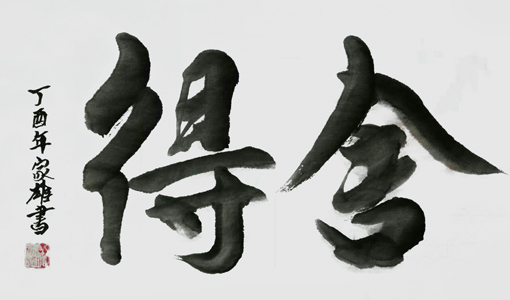 舍得
丁酉年家雄書